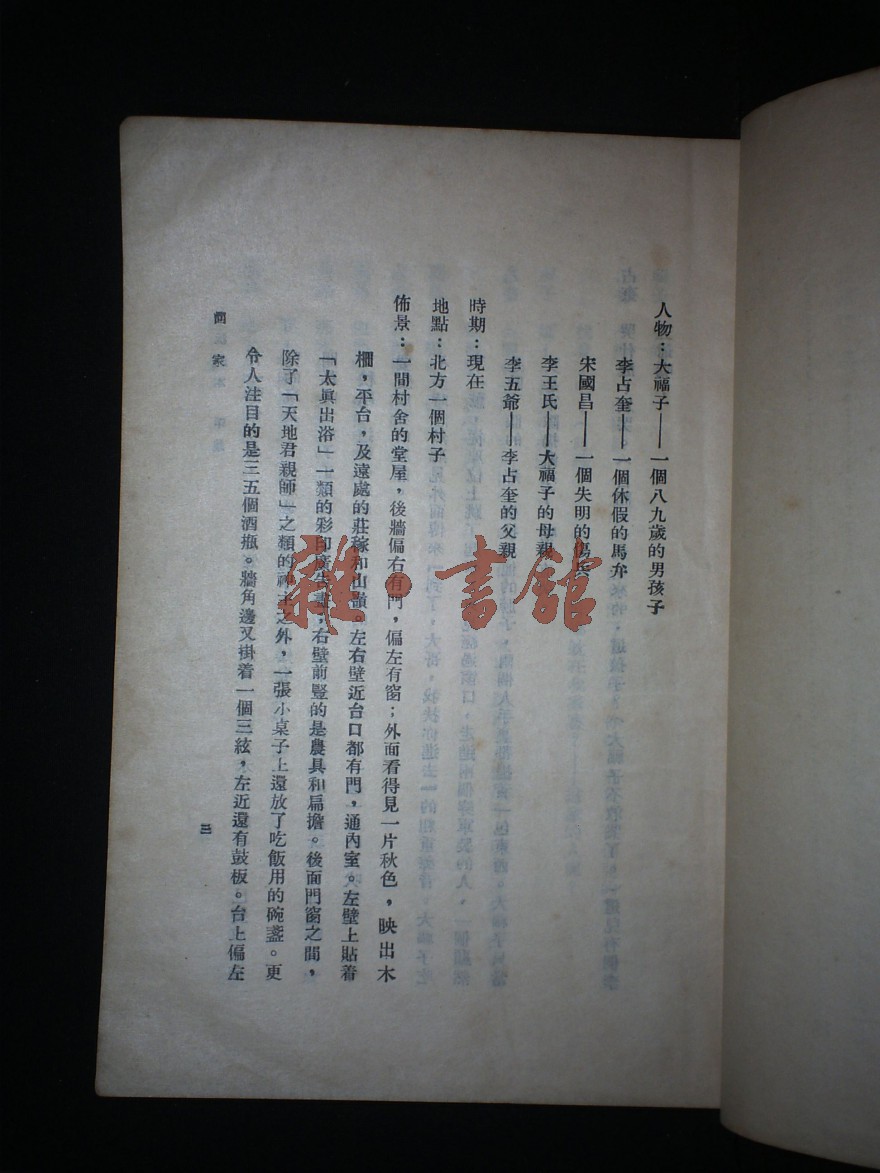 人物：大福子——一個八九歲的男孩子
李占奎——一個休假的馬弁
宋國昌——一個失明的傷兵
李王氏——大福子的母親
李五爺——李占奎的父親
時期：現在
地點：北方一個村子
佈景：一間村舍的堂屋，後牆偏右有門，偏左有窗；外面看得見一片秋色，映出木
柵，平台，及遠處的莊稼和山嶺。左右壁近台口都有門，通內室。左壁上貼着
「太眞出浴」一類的彩印廣告畫，右壁前豎的是農具和扁擔。後面門窗之間，
除了「天地君親師」之類的神主之外，一張小桌子上還放了吃飯用的碗盞。更
令人注目的是三五個酒瓶。牆角邊又掛着一個三絃，左近還有鼓板。台上偏左
家
三
雜·書館